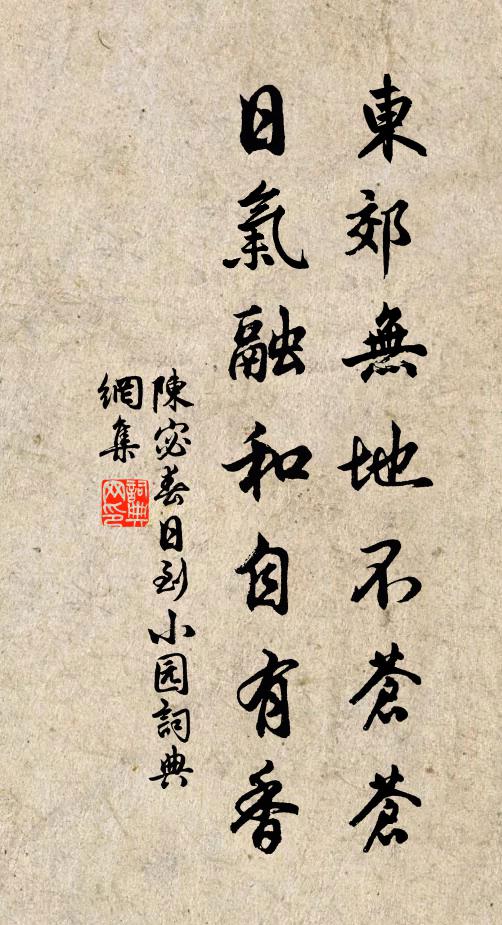 東郊無地不蒼蒼
日氣融和自有香
陳宓春日到小园詞典
網集
詞典
网印